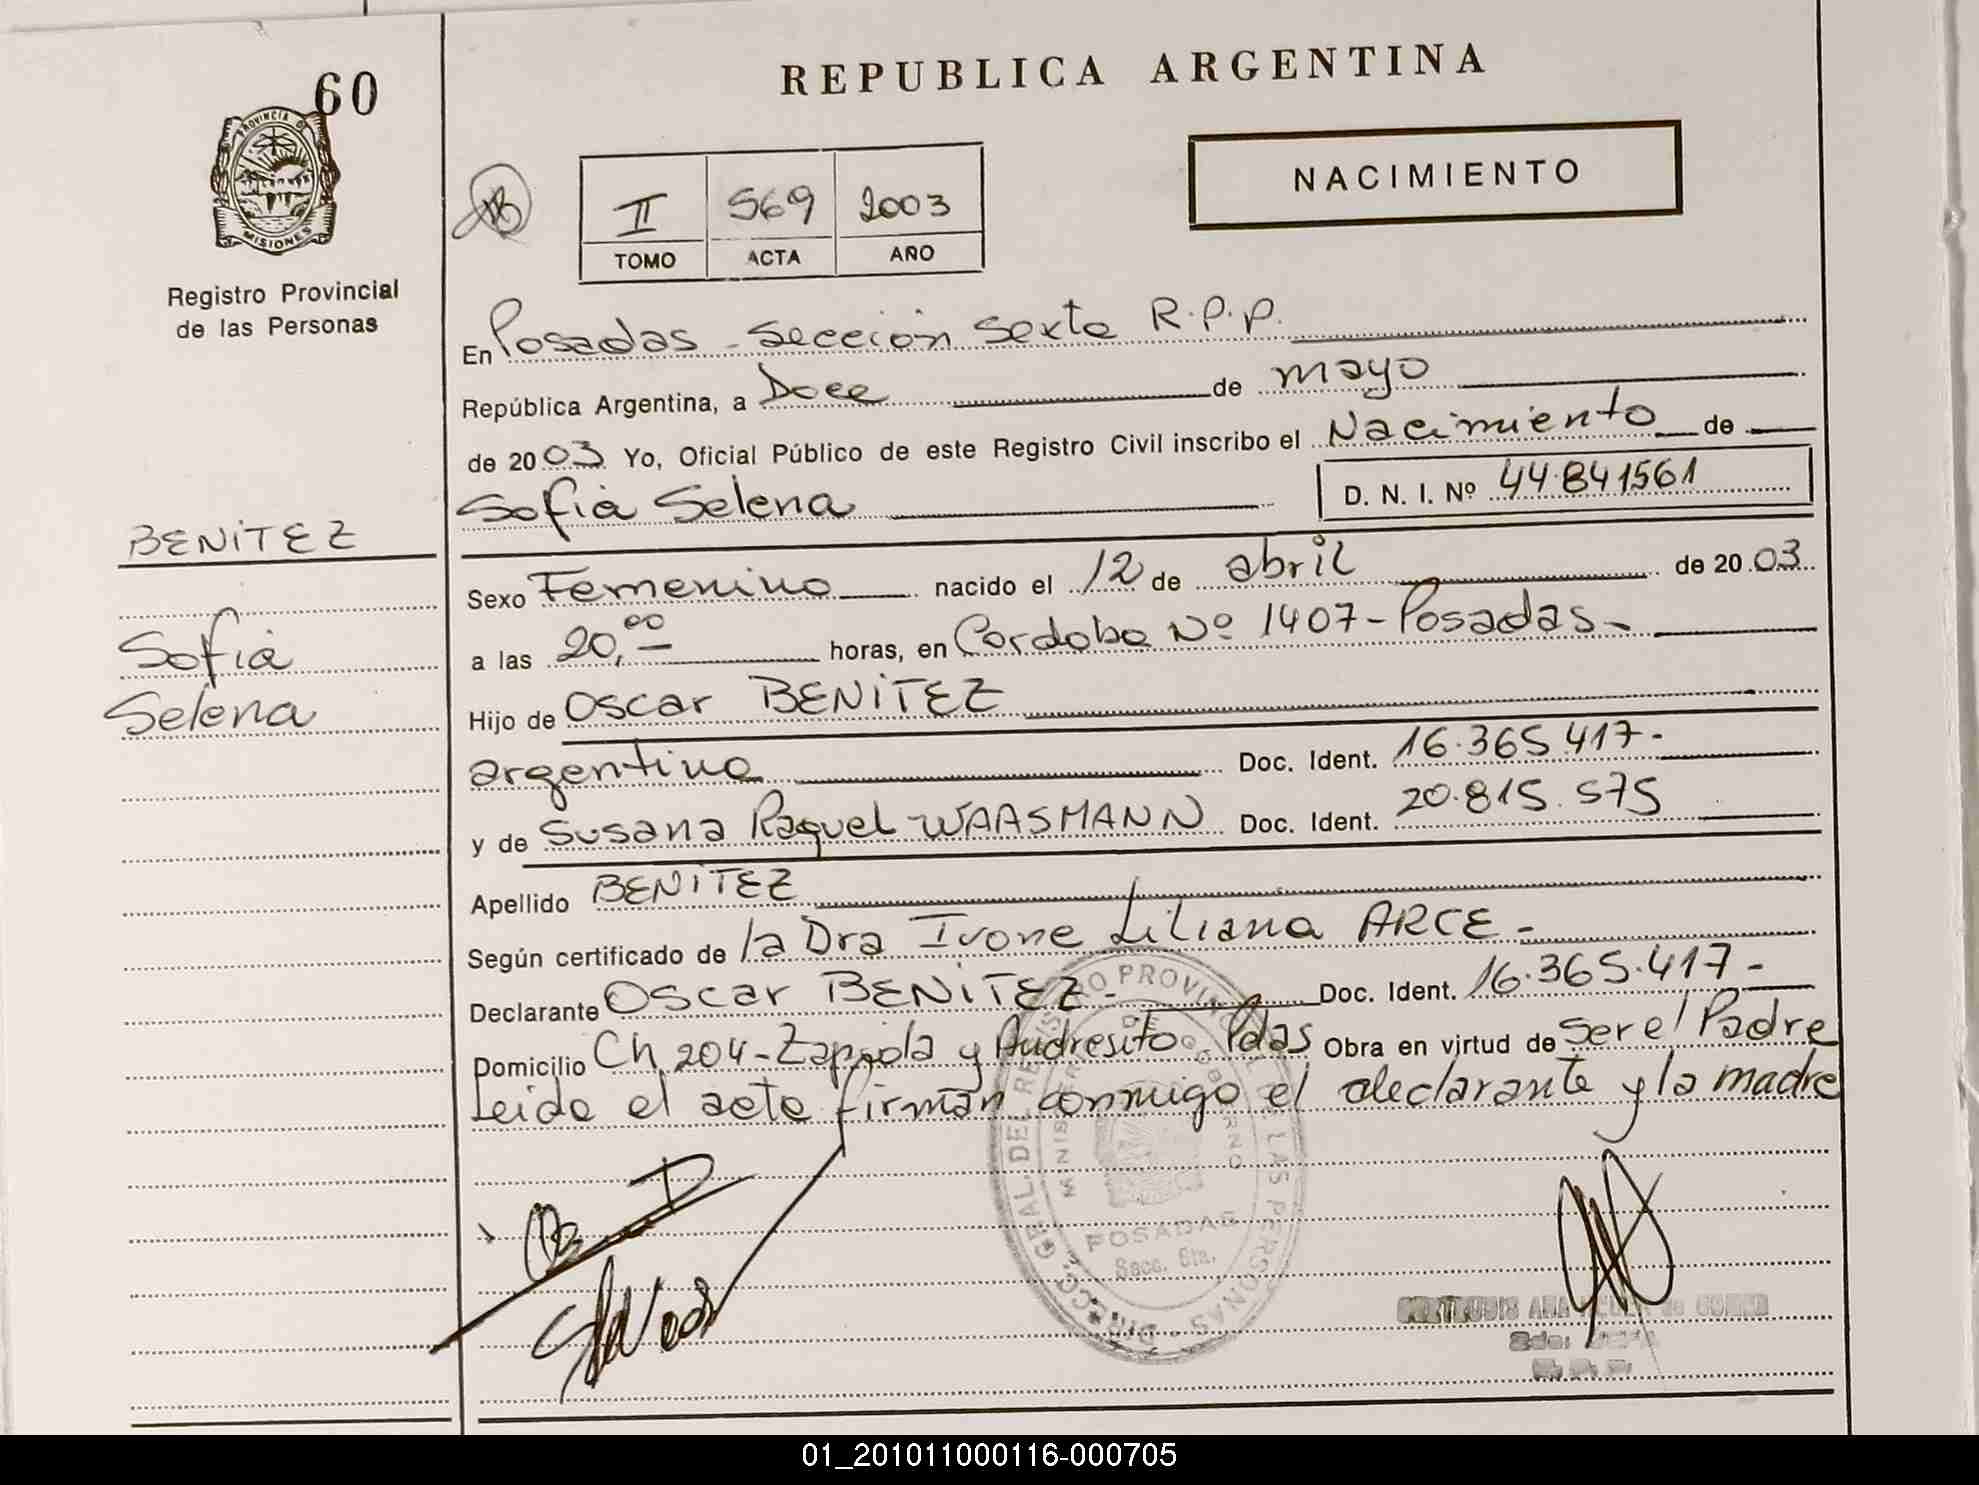 60
PROVINCIA DE
MISIONES
Registro Provincial
de las Personas
BENITEZ
Sofia
Selena
REPUBLICA ARGENTINA
NACIMIENTO
II 569 2003
TOMO ACTA AÑO
En Posadas - Sección Sexta R.P.P.
República Argentina, a Doce de mayo
de 2003 Yo, Oficial Público de este Registro Civil inscribo el Nacimiento de
Sofia Selena D. N. I. Nº 44.841561
Sexo Femenino nacido el 12 de abril de 2003
a las 20,00 horas, en Cordoba Nº 1407 - Posadas -
Hijo de Oscar BENITEZ
argentino Doc. Ident. 16.365.417 -
y de Susana Raquel WAASMANN Doc. Ident. 20.815.575
Apellido BENITEZ
Según certificado de la Dra Ivone Liliana ARCE -
Declarante Oscar BENITEZ - Doc. Ident. 16.365.417 -
Domicilio Ch. 204 - Zapiola y Andresito Pdas Obra en virtud de ser el Padre
Leida el acta firman conmigo el declarante y la madre
DIRECC. GRAL. DEL REGISTRO PROVINCIAL DE LAS PERSONAS
MINISTERIO DE GOBIERNO
POSADAS
Secc. 6ta.
01_201011000116-000705